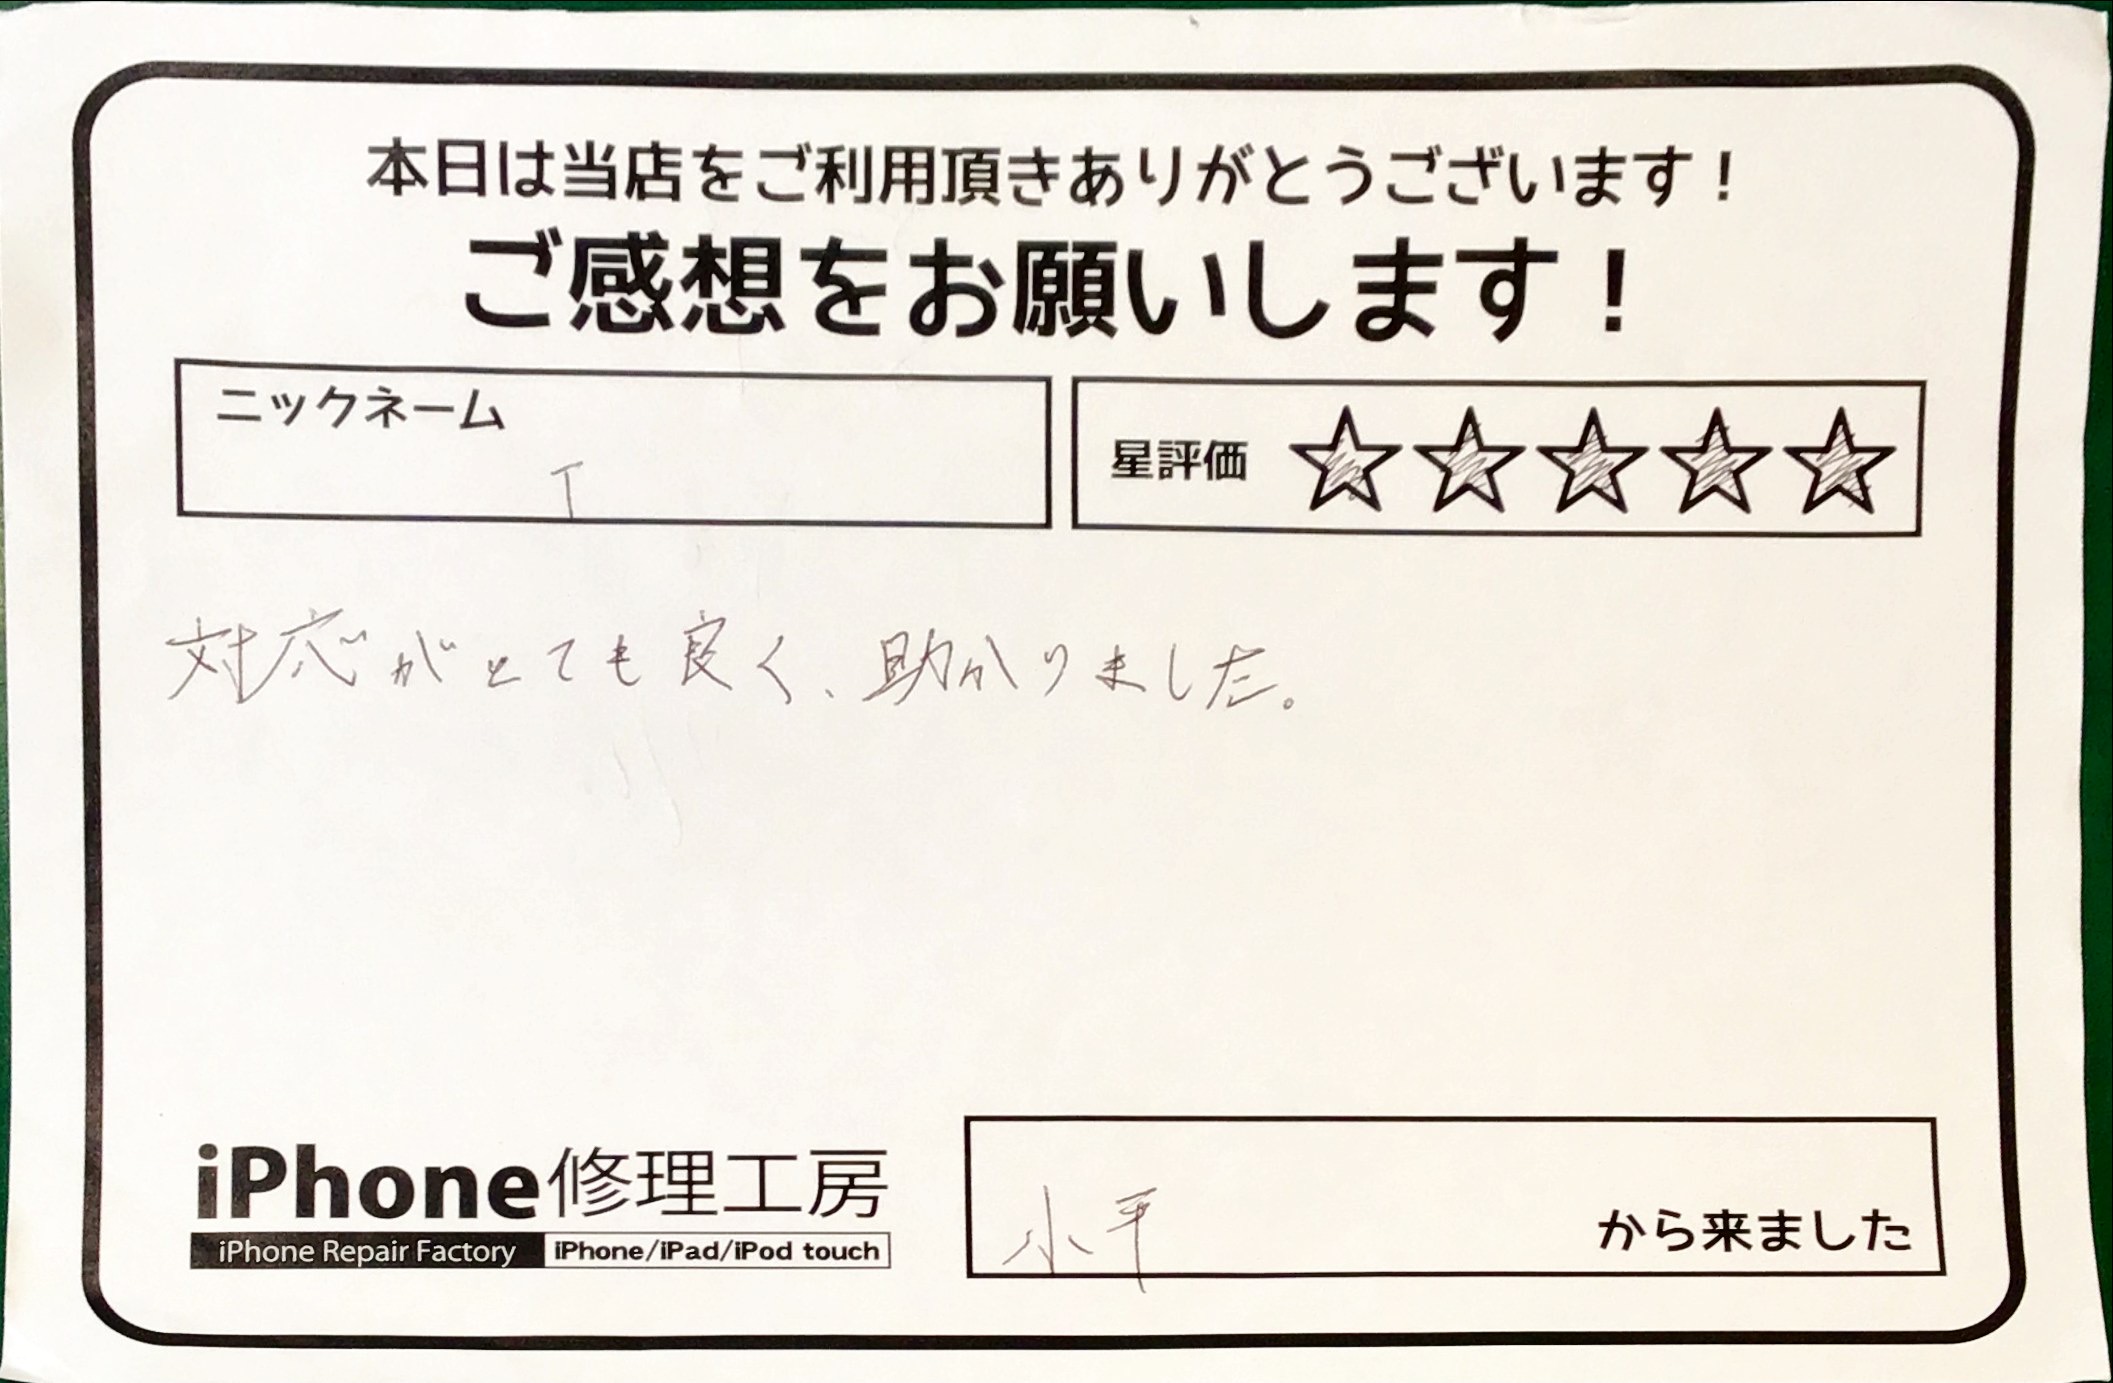 本日は当店をご利用頂きありがとうございます！
ご感想をお願いします！
ニックネーム
T
星評価 ☆☆☆☆☆
対応がとても良く、助かりました。
iPhone修理工房
iPhone Repair Factory iPhone/iPad/iPod touch
小平 から来ました